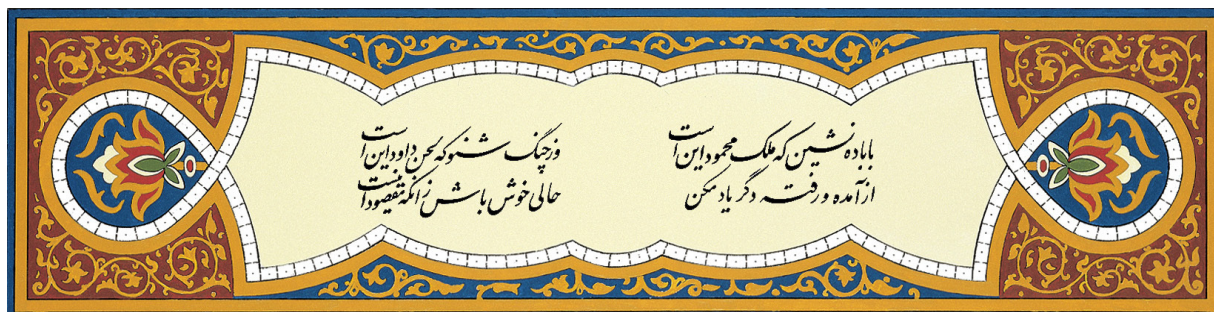 با باده نشین که ملک محمود این است
وز چنگ شنو که لحن داود این است
از آمده و رفته دگر یاد مکن
حالی خوش باش زانکه مقصود این است